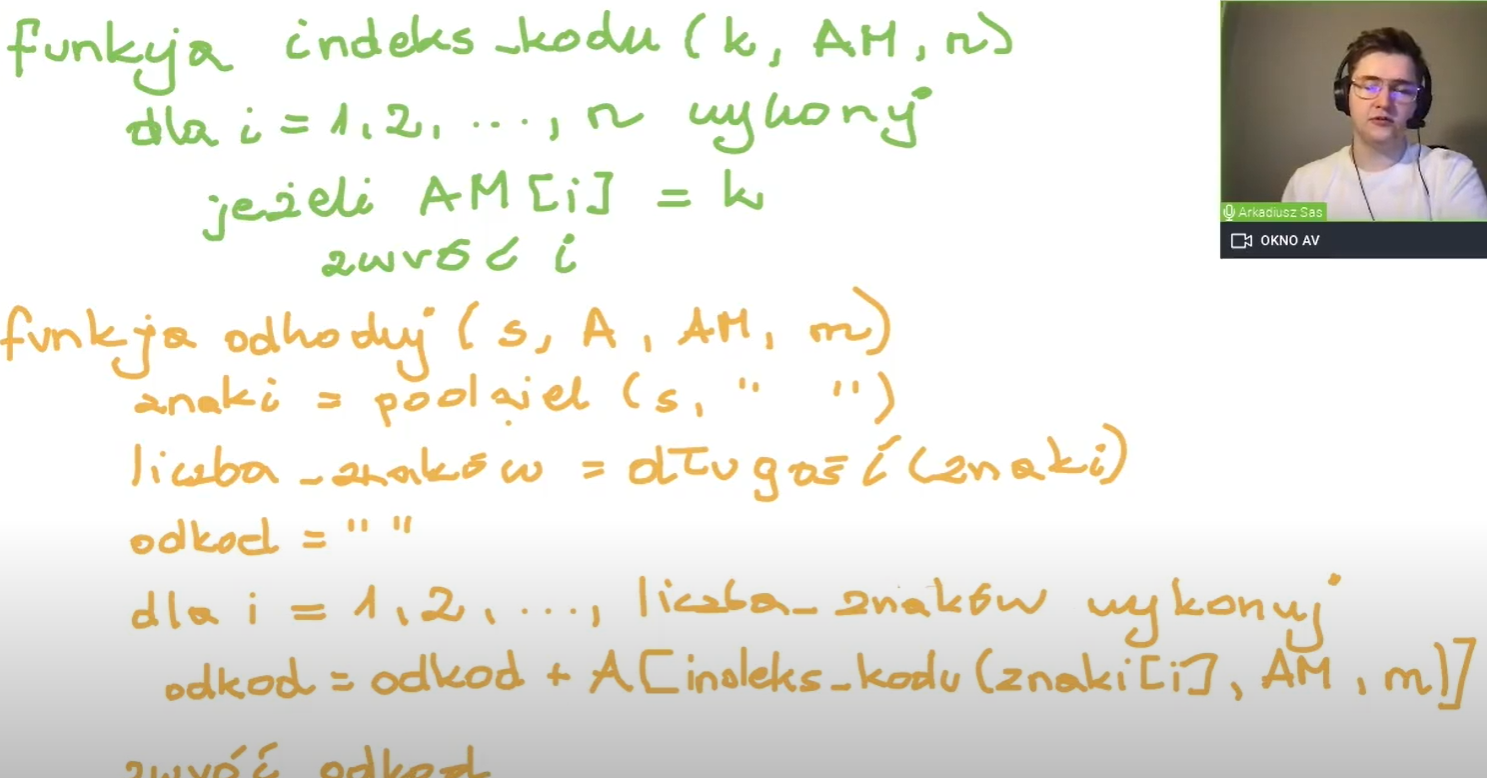 funkcja indeks_kodu (k, AM, n)
dla i = 1, 2, ..., n wykonuj
jeżeli AM[i] = k
zwróć i
funkcja odkoduj (s, A, AM, n)
znaki = podziel (s, " ")
liczba_znaków = długość (znaki)
odkod = " "
dla i = 1, 2, ..., liczba_znaków wykonuj
odkod = odkod + A[indeks_kodu (znaki[i], AM, n)]
zwróć odkod
Arkadiusz Sas
OKNO AV